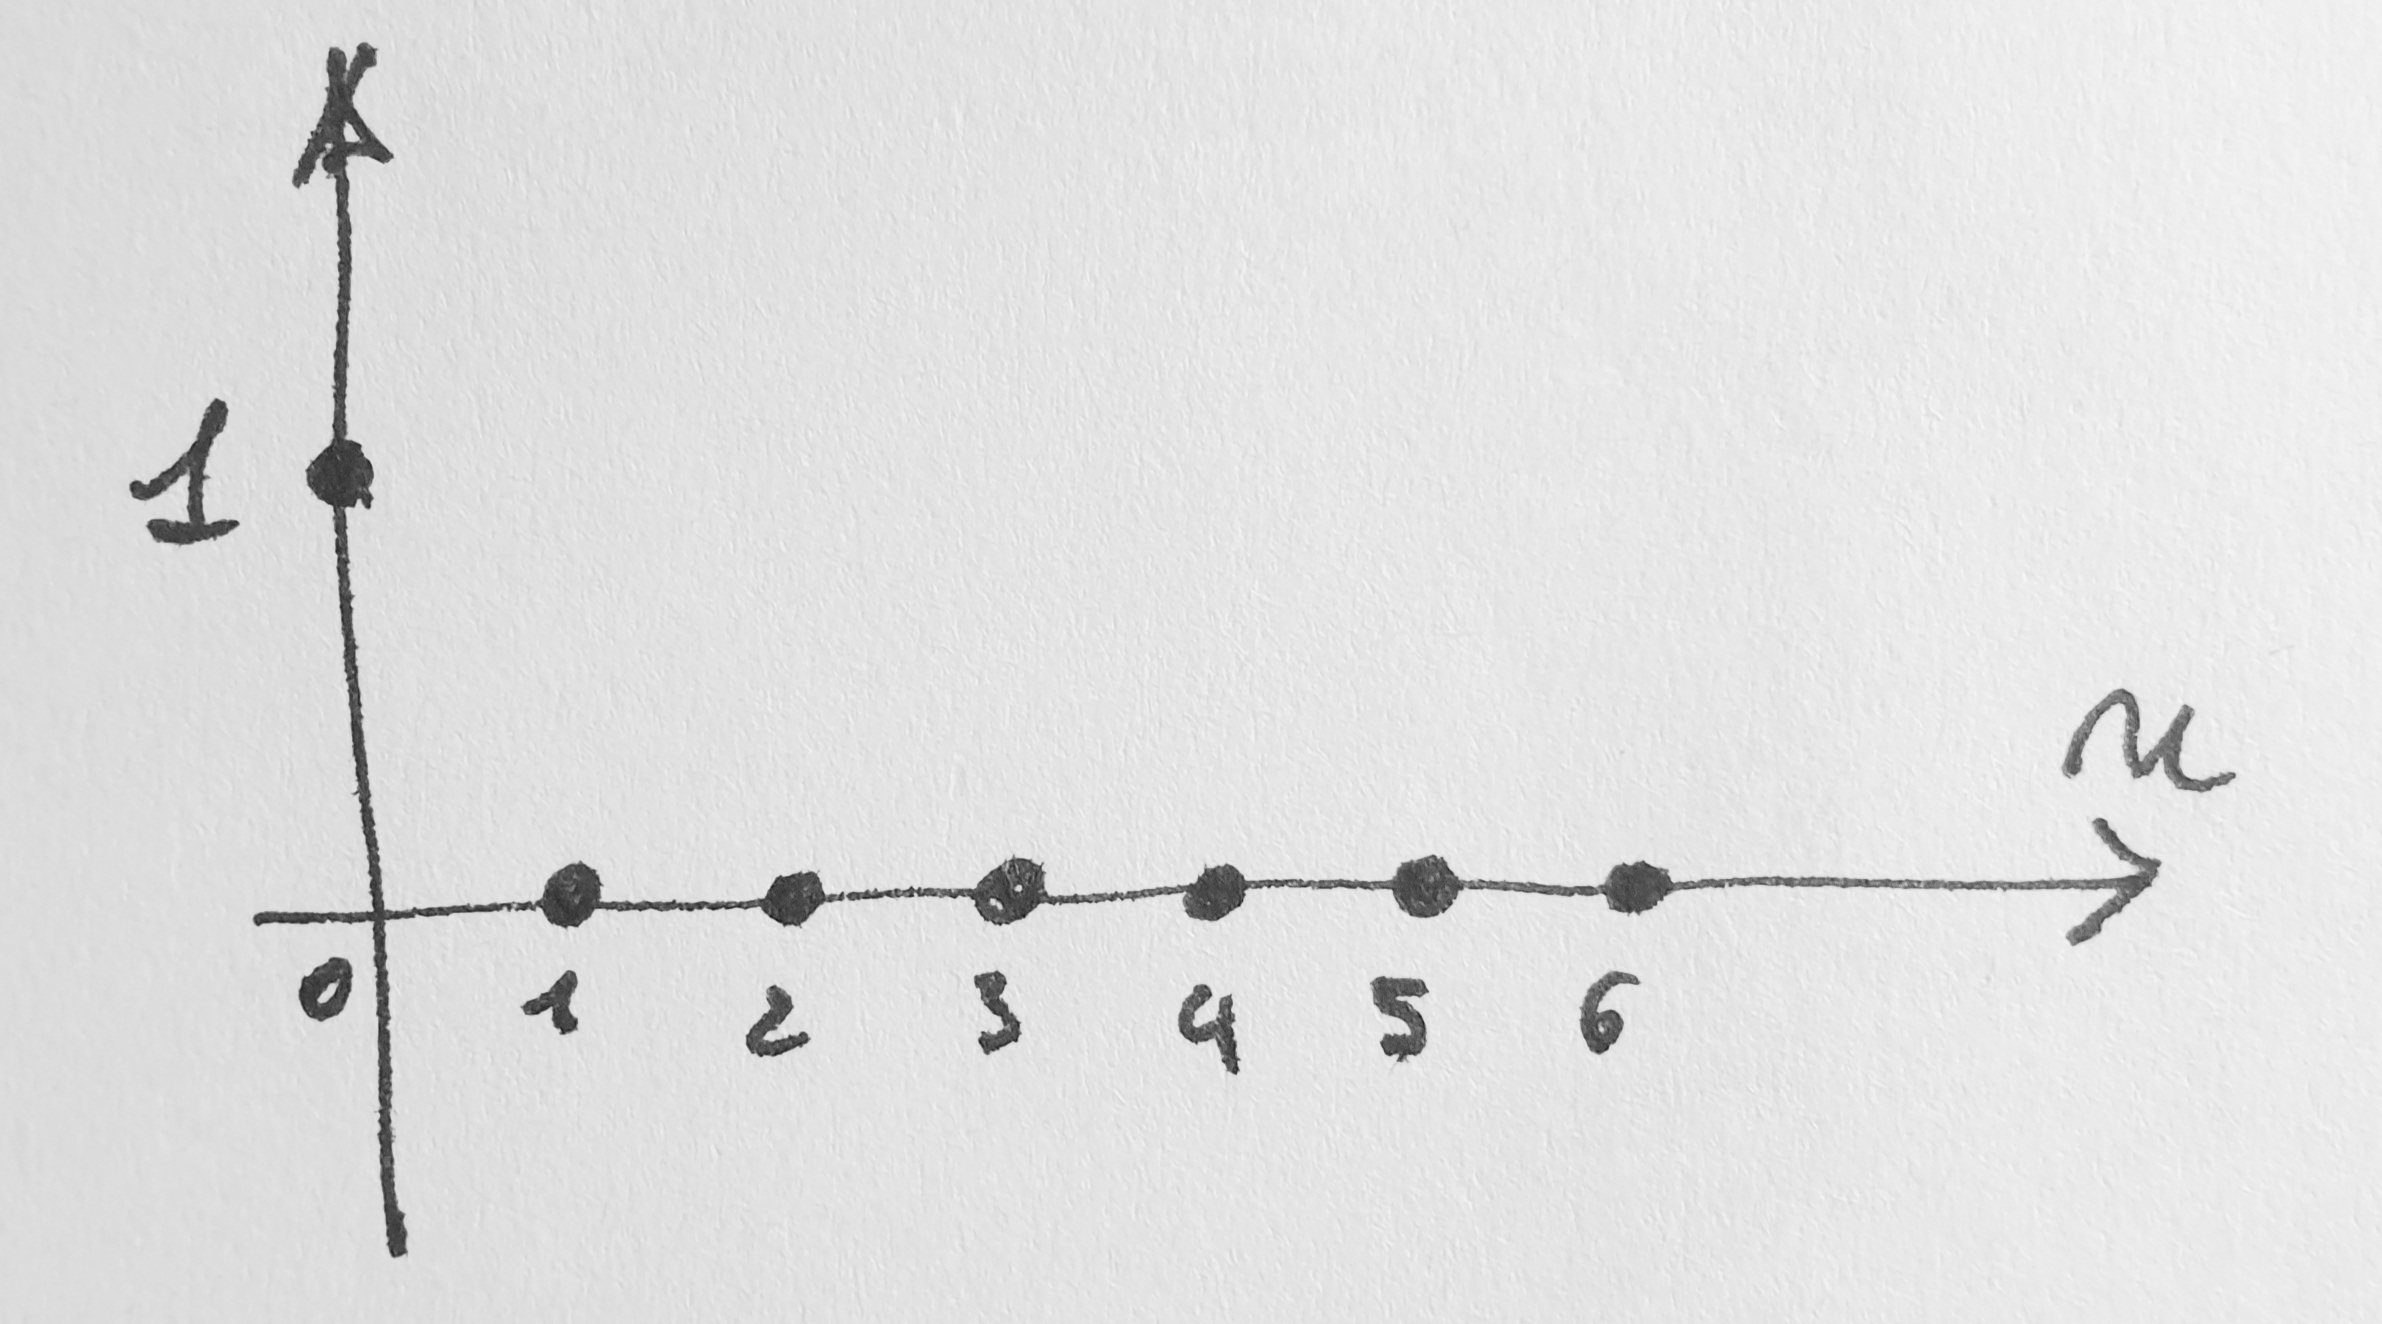 1
n
0 1 2 3 4 5 6